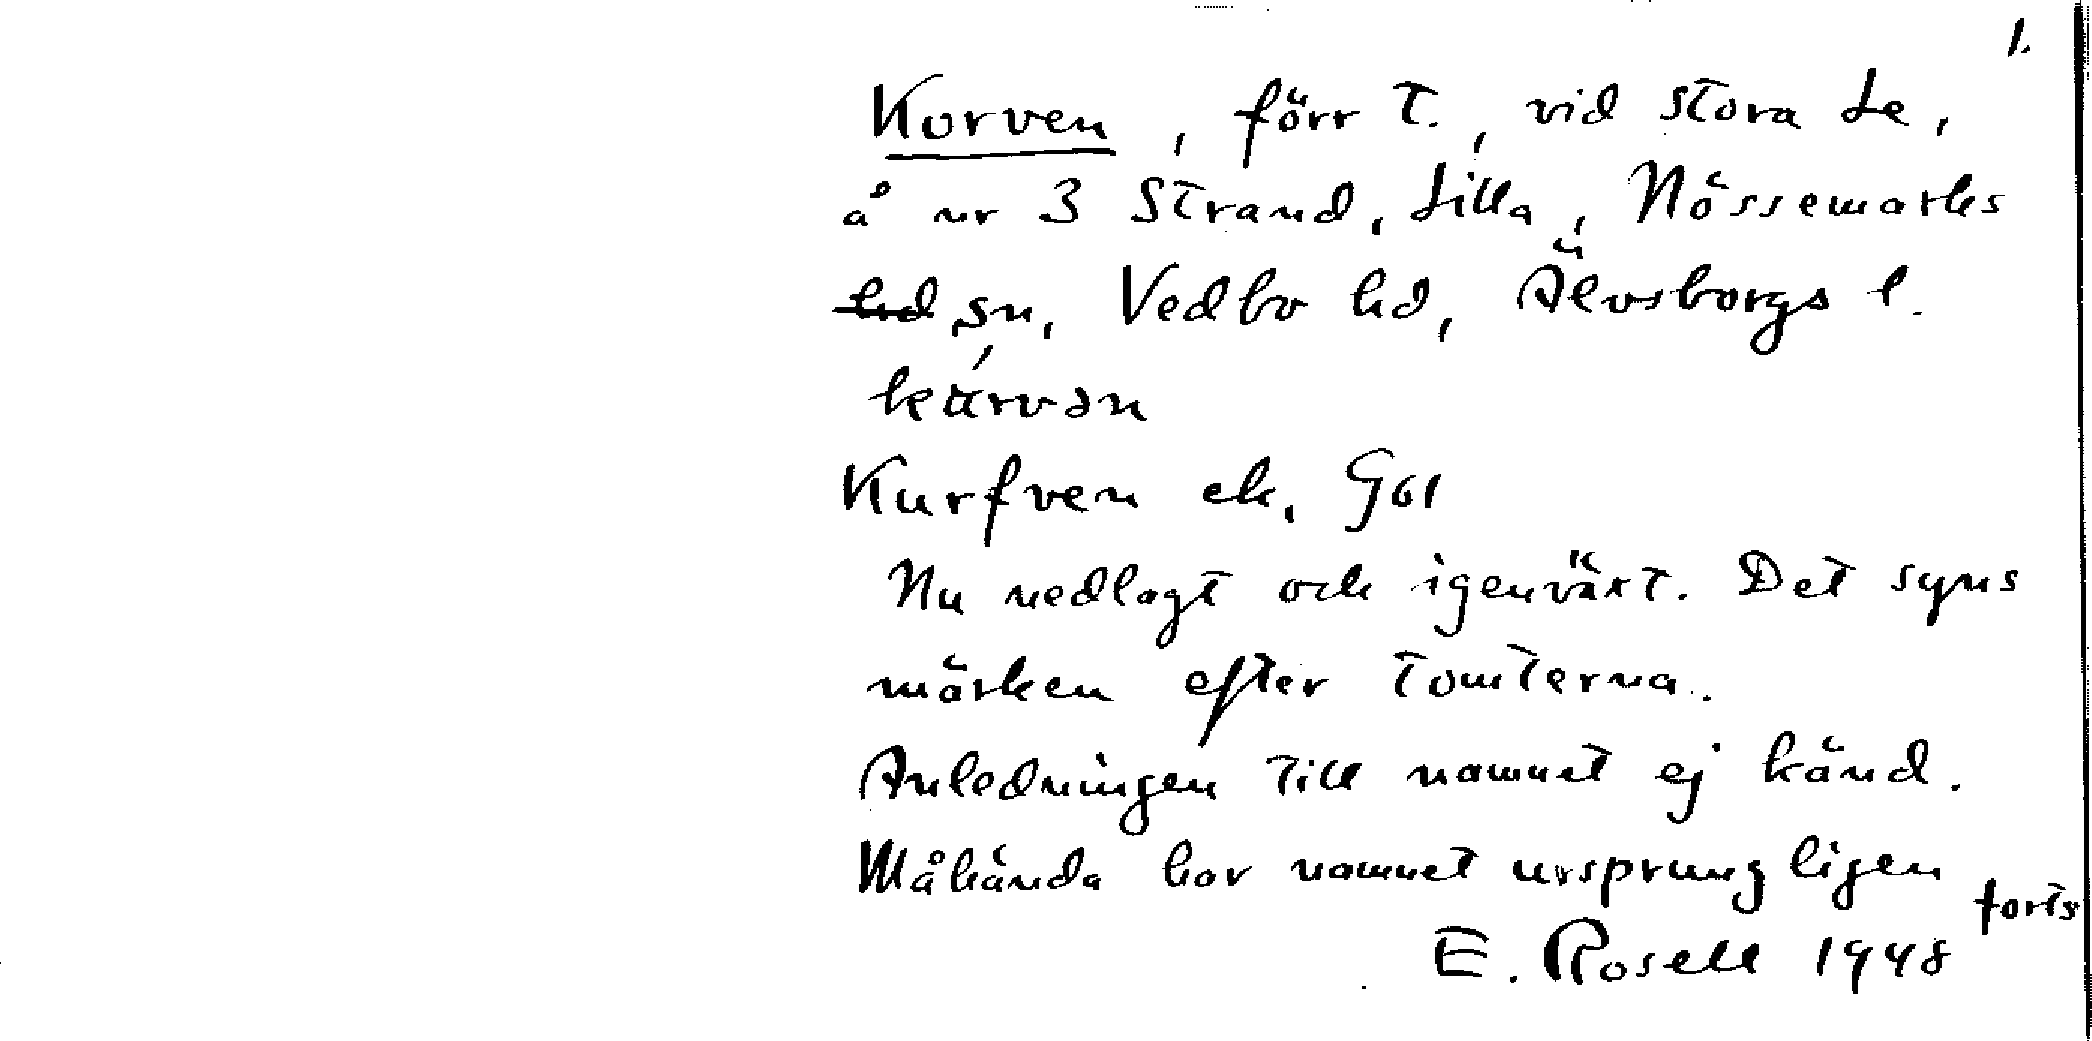 1.
Korven, förr t., vid Stora Le,
å nr 3 Strand, Lilla, Nössemarks
hd sn, Vedbo hd, Älvsborgs l.
Kurfven ek. G61
Nu nedlagt och igenväxt. Det syns
märken efter tomterna.
Anledningen till namnet ej känd.
Måhända har namnet ursprungligen
forts
E. Rosell 1948